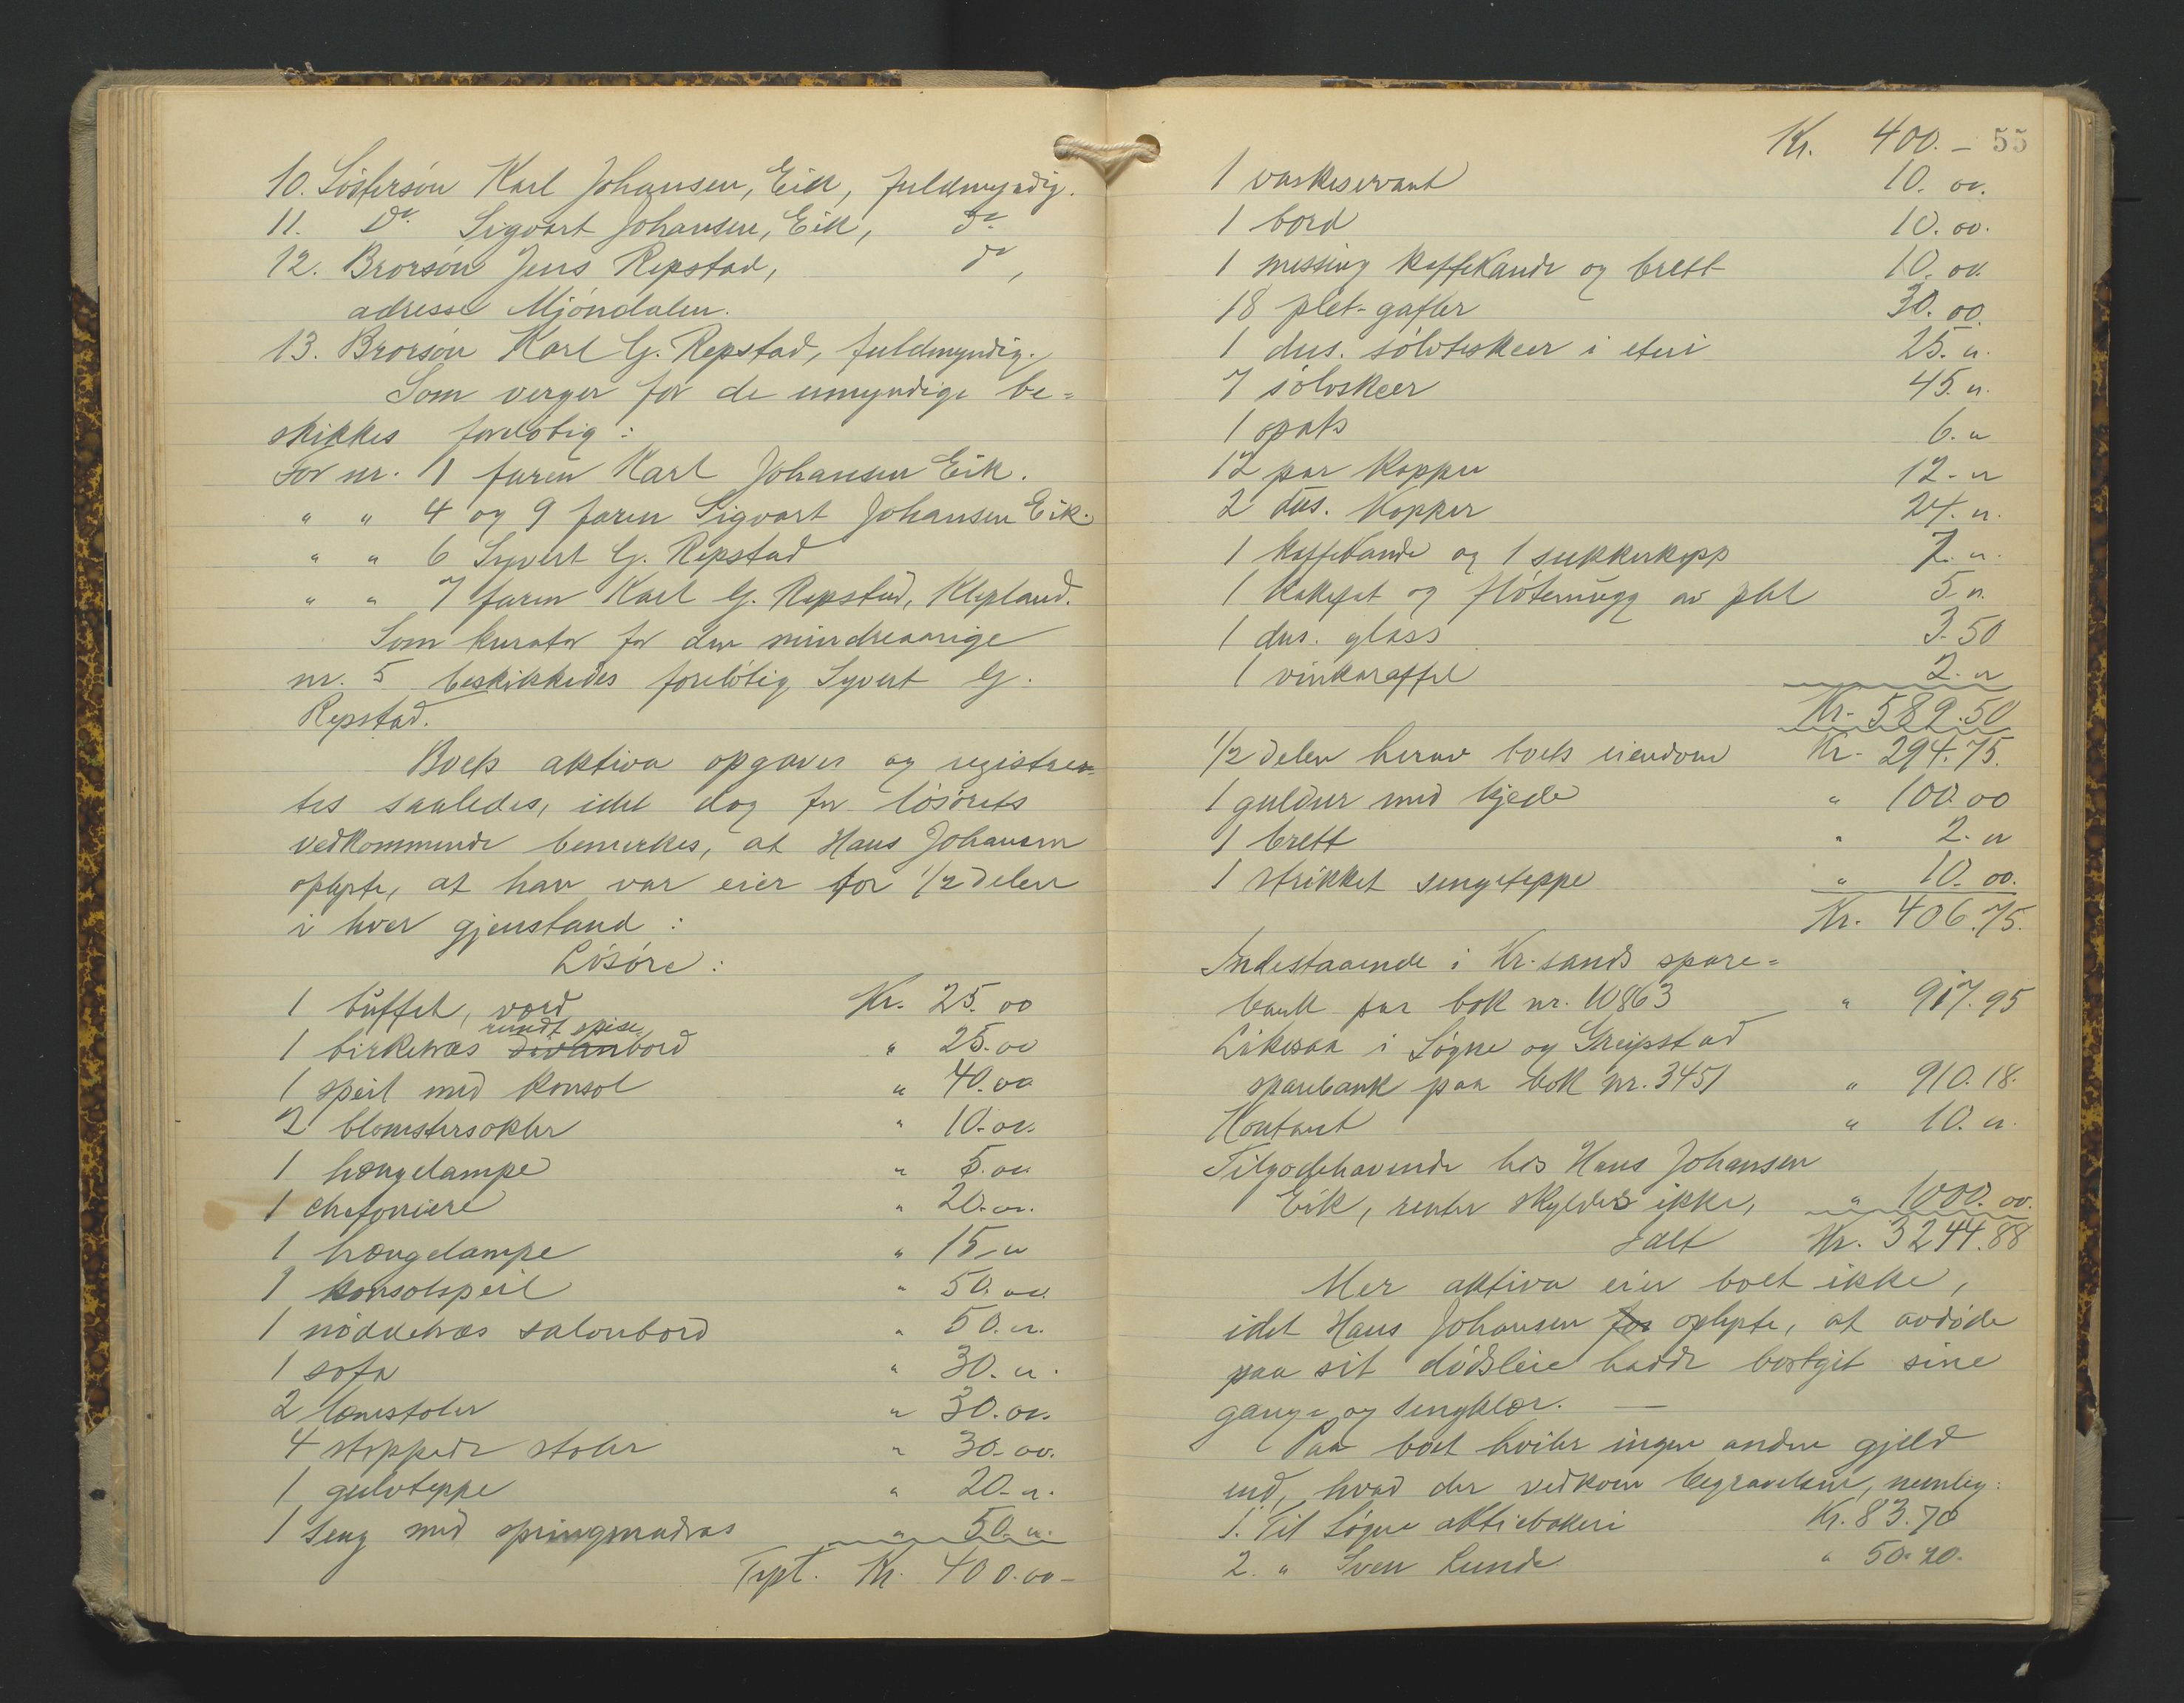 10. Søstersøn Karl Johansen, Eik, fuldmyndig.
11. Do. Sigvart Johansen, Eik, do.
12. Brorsøn Jens Repstad, do,
adresse Mjøndalen.
13. Brorsøn Karl G. Repstad, fuldmyndig.
Som verger for de umyndige be=
skikkes foreløbig:
For nr. 1 faren Karl Johansen Eik.
" " 4 og 9 faren Sigvart Johansen Eik.
" " 6 Syvert G. Repstad
" " 7 faren Karl G. Repstad, Klepland.
Som kurator for den mindreaarige
nr. 5 beskikkedes foreløbig Syvert G.
Repstad.
Boets aktiva opgaves og registrer-
tes saaledes, idet dog for løsørets
vedkommende bemerkes, at Hans Johansen
oplyste, at han var eier for 1/2 delen
i hver gjenstand:
Løsøre:
1 buffet, Kr. 25.00
rundt spise
1 birketræs divanbord " 25.00
1 speil med konsol " 40.00
2 blomstersokler " 10.00.
1 hængelampe " 5.00
1 chefoniere " 20.00.
1 hængelampe " 15 "
1 konsolspeil " 50.00.
1 nøddetræs salonbord " 50. ".
1 sofa " 30. ".
2 lænestoler " 30.00.
4 stoppede stoler " 30.00.
1 gulvteppe " 20. ".
1 seng med springmadras " 50. ".
Trpt. Kr. 400.00-
Kr. 400.- 55
1 vaskeservant 10.00.
1 bord 10.00.
1 messing kaffekande og brett 10.00.
18 plet-gafler 30.00.
1 dus. sølvteskeer i etui 25. ".
7 sølvskeer 45. ".
1 opsats 6. "
12 par kopper 12. "
2 dus. kopper 24. ".
1 kaffekande og 1 sukkerkopp 7. ".
1 kakefat og fløtemugg av plet 5 ".
1 dus. glass 3.50
1 vinkaraffel 2. "
Kr. 589.50
1/2 delen herav boets eiendom Kr. 294.75.
1 guldur med kjede " 100.00
1 brett " 2. "
1 strikket sengeteppe " 10.00.
Kr. 406.75.
Indestaaende i Kr.sands spare=
bank paa bok nr. 10863 " 917.95
Likesaa i Søgne og Greipstad
sparebank paa bok nr. 3451 " 910.18.
Kontant " 10. ".
Tilgodehavende hos Hans Johansen
Eik, renter skyldes ikke, " 1000.00.
Ialt Kr. 3244.88
Mer aktiva eier boet ikke,
idet Hans Johansen for oplyste, at avdøde
paa sit dødsleie hadde bortgit sine
gang- og sengklær. —
Paa boet hviler ingen anden gjeld
end, hvad der vedkom begravelsen, nemlig:
1. Til Søgne aktiebakeri Kr. 83.70
2. " Sven Lunde " 50.20.